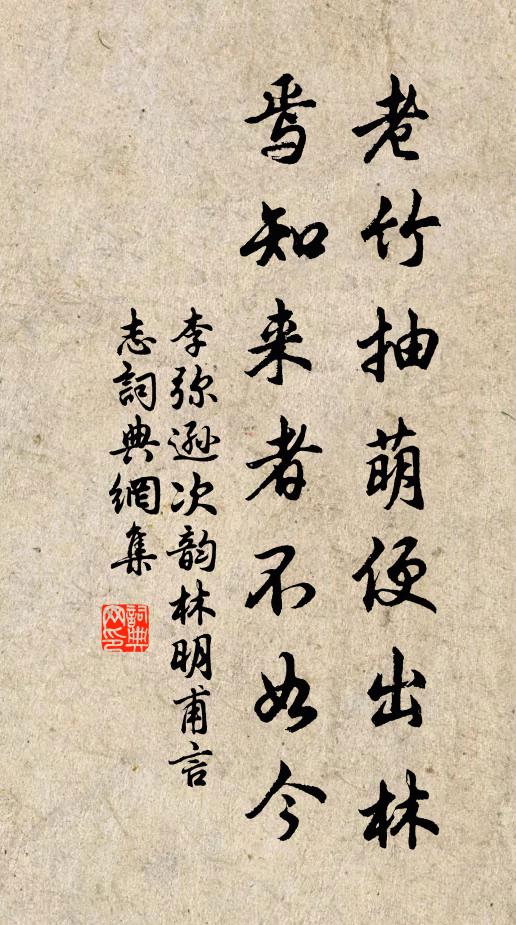 老竹抽萌便出林
焉知来者不如今
李弥逊次韵林明甫言
志詞典網集
詞典
网印